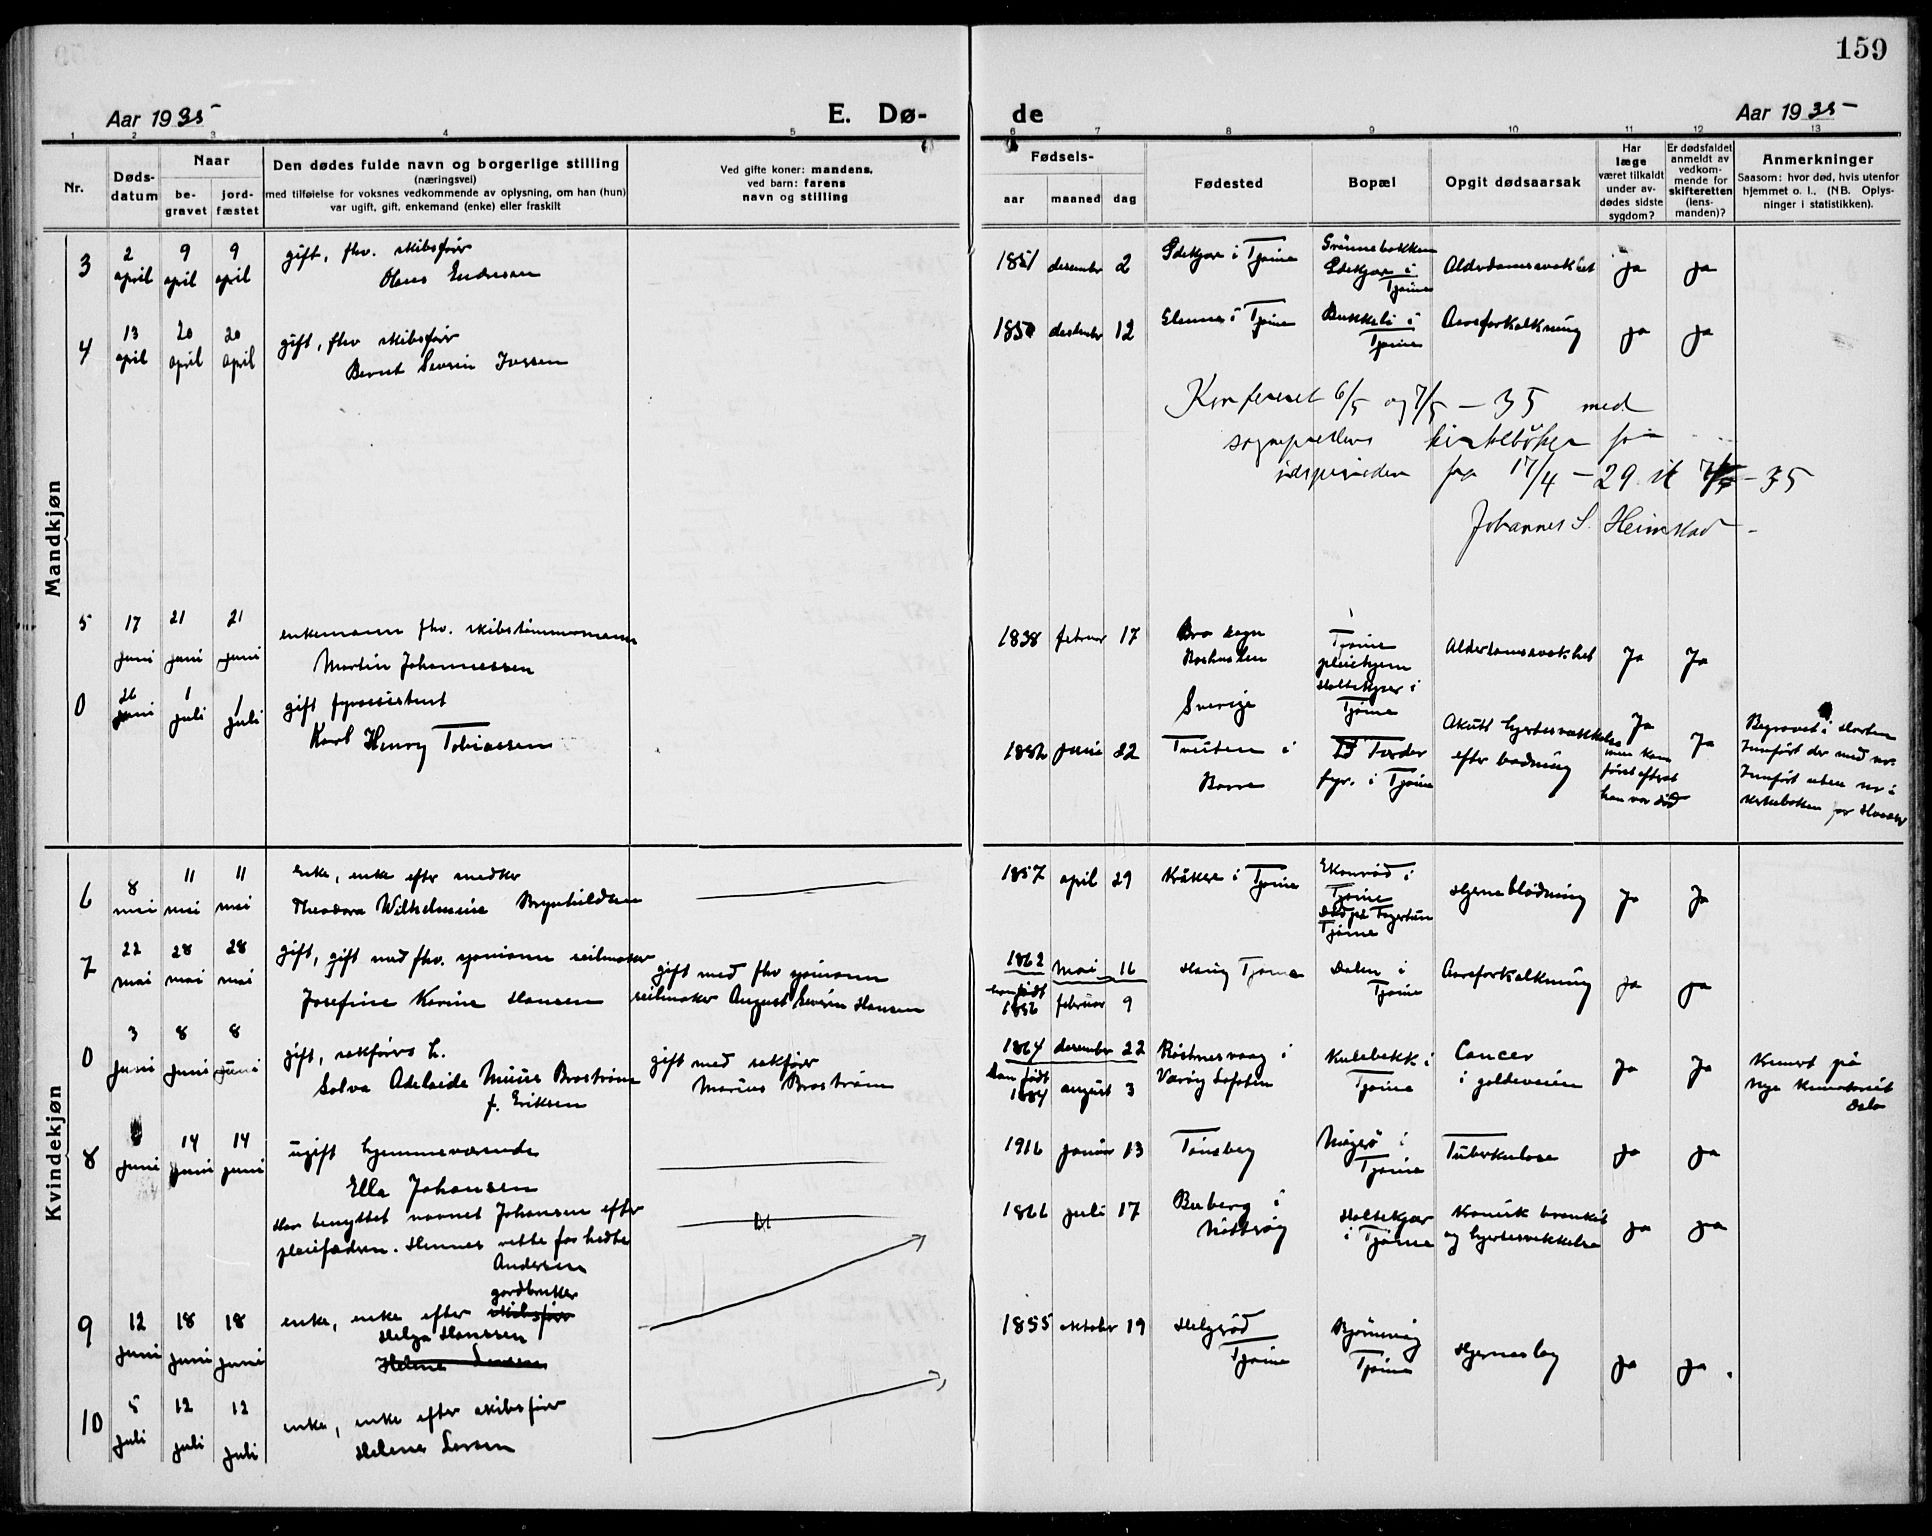 159
Aar 1935
E. Dø-
de
Aar 1935
1 2 3 4 5 6 7 8 9 10 11 12 13
Nr.
Døds-
datum
Naar
be-
gravet
jord-
fæstet
Den dødes fulde navn og borgerlige stilling
(næringsvei)
med tilføielse for voksnes vedkommende av oplysning, om han (hun)
var ugift, gift, enkemand (enke) eller fraskilt
Ved gifte koner: mandens,
ved barn: farens
navn og stilling
Fødsels-
aar maaned dag
Fødested
Bopæl
Opgit dødsaarsak
Har
læge
været tilkaldt
under av-
dødes sidste
sygdom?
Er dødsfaldet
anmeldt av
vedkom-
mende for
skifteretten
(lens-
manden)?
Anmerkninger
Saasom: hvor død, hvis utenfor
hjemmet o. l., (NB. Oplys-
ninger i statistikken).
Mandkjøn
3 2 april 9 april 9 april gift, fhv. skibsfører
Olaus
1851 desember 2 i Tjøme
Grønnebakken
i
Tjøme
Alderdomssvakhet ja ja
4 13 april 20 april 20 april gift, fhv skibsfører
Bernt Severin Iversen
1850 desember 12 i Tjøme
i
Tjøme
Aareforkalkning ja ja
Konfereret 6/5 og 7/5 – 35 med
sogneprestens kirkebøker for
tidsperioden fra 17/4 – 29 til 7/5 – 35
Johannes S. Heimstad
5 17 juni 21 juni 21 juni enkemann fhv. skibstømmermann
Martin Johannessen
1838 februar 17 Bro sogn
Bohuslen
Sverige
Tjøme
pleiehjem
Holtekjær i
Tjøme
Alderdomssvakhet Ja Ja
0 26 juni 1 juli 1 juli gift fyrassistent
Karl Henry Tobiassen
juni 22 i
Borre
Færder
fyr. i Tjøme
Akutt hjertesvækkelse
efter badning
Ja
men kom
først efterat
han var død
Ja
Begravet i Horten
Innført der med nr.
Innført uten nr i
kirkeboken for Hvasser
Kvindekjøn
6 8 mai 11 mai 11 mai enke, enke efter snedker
Theodora Wilhelmine Brynhildsen
1857 april 29 Kråkere i Tjøme
Ekenrød i
Tjøme
Død på Fagertun
Tjøme
Hjerneblødning Ja Ja
7 22 mai 28 mai 28 mai gift, gift med fhv. sjømann seilmaker
Josefine Karine Hansen
gift med fhv sjømann
seilmaker August Severin Hansen
1862 mai 16
han født
1856 februar 9
Haug Tjøme
Dalen i
Tjøme
Aareforkalkning ja ja
0 3 juni 8 juni 8 juni gift, sakførers h.
Solva Adelaide Brostrøm
f. Eriksen
gift med sakfører
Marius Brostrøm
1864 desember 22
Han født
august 3
Røstnesvaag i
Værøy Lofoten
Kulebekk i
Tjøme
Cancer
i galdeveiene
Ja Ja
Kremert på
nye Krematoriet
Oslo
8 juni 14 juni 14 juni ugift hjemmeværende
Ella Johansen
Har benyttet navnet Johansen efter
pleiefaren. Hennes rette far hedte
Andersen
1916 januar 13 Tønsberg
Magerø i
Tjøme
Tuberkulose ja ja
9 12 juni 18 juni 18 juni enke, enke efter skibsfører
gårdbruker
Helga Hanssen
Helene Larsen
1866 juli 17 Buberg i
Nøtterøy
Holtekjær
i Tjøme
Kronisk bronkit
og hjertesvekkelse
ja ja
10 5 juli 12 juli 12 juli enke, enke efter skibsfører
Helene Larsen
1855 oktober 19 Helgerød
Tjøme
Bjønneng
Tjøme
Hjerneslag ja ja